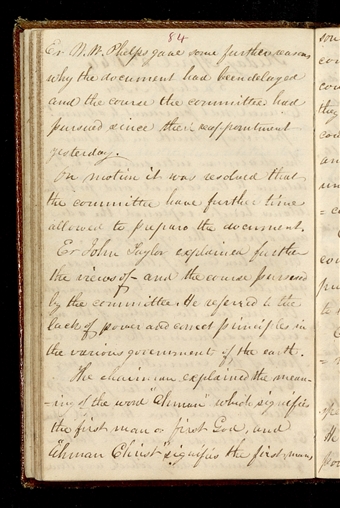 84
Er W. W. Phelps gave some further reasons
why the document had been delayed
and the course the committee had
pursued since their reappointment
yesterday.
On motion it was resolved that
the committee have further time
allowed to prepare the document.
Er John Taylor explained further
the views of and the course pursued
by the committee. He referred to the
lack of power and correct principles in
the various government of the earth.
The chairman explained the mean-
-ing of the word "Ahman" which signifies
the first man or first God, and
"Ahman Christ" signifies the first mans